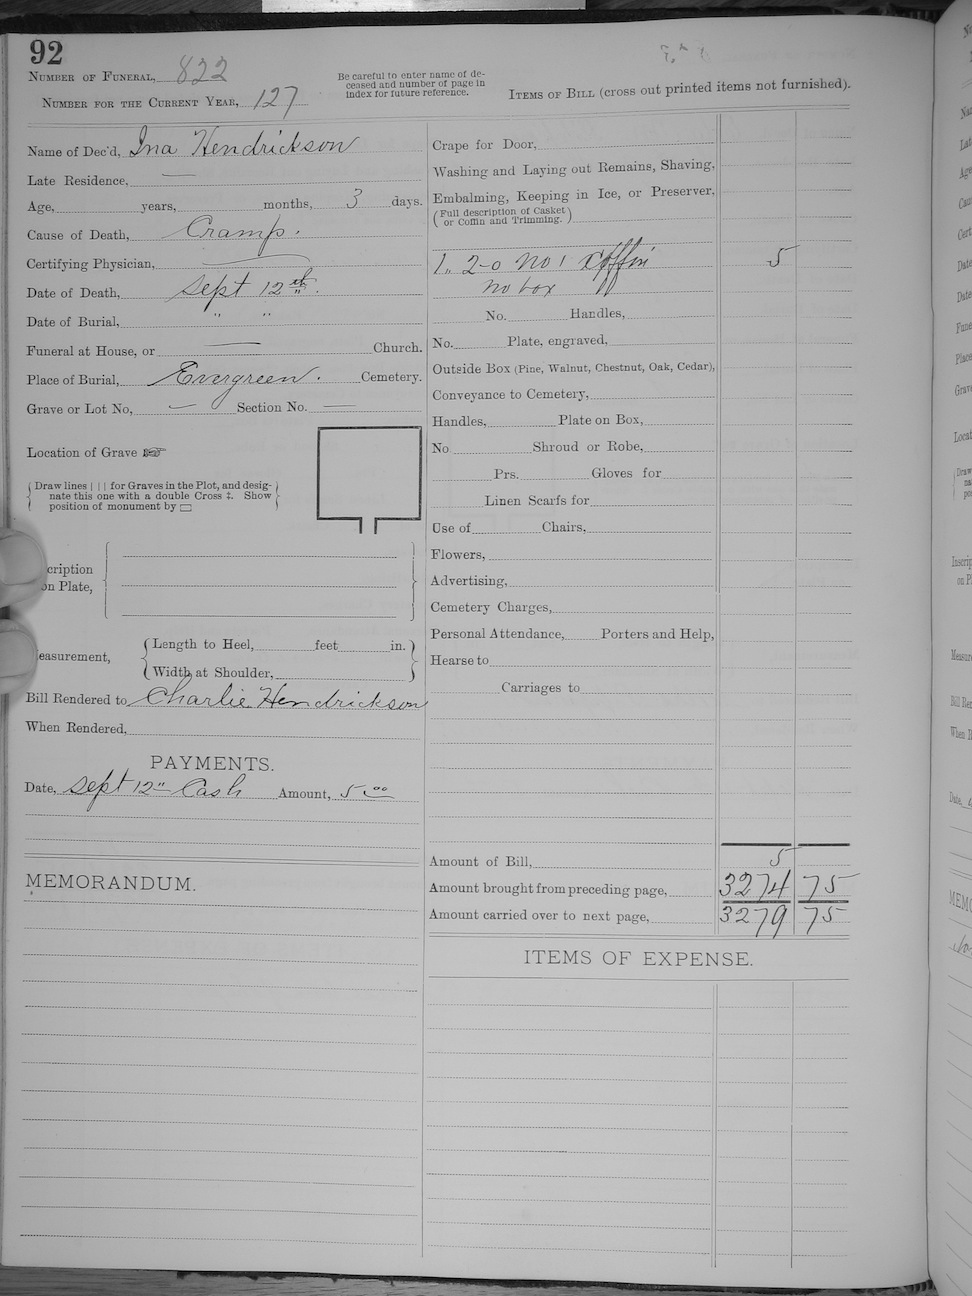 92
NUMBER OF FUNERAL, 822
NUMBER FOR THE CURRENT YEAR, 127
Be careful to enter name of de-
ceased and number of page in
index for future reference.
ITEMS OF BILL (cross out printed items not furnished).
Name of Dec'd, Ina Hendrickson
Late Residence, —
Age, years, months, 3 days.
Cause of Death, Cramp.
Certifying Physician, —
Date of Death, Sept 12th.
Date of Burial, " "
Funeral at House, or — Church.
Place of Burial, Evergreen. Cemetery.
Grave or Lot No, — Section No. —
Location of Grave ☞
Draw lines | | | for Graves in the Plot, and desig-
nate this one with a double Cross ‡. Show
position of monument by ▭
cription
on Plate,
easurement,
Length to Heel, feet in.
Width at Shoulder,
Bill Rendered to Charlie Hendrickson
When Rendered,
PAYMENTS.
Date, Sept 12" Cash Amount, 5.00
MEMORANDUM.
Crape for Door,
Washing and Laying out Remains, Shaving,
Embalming, Keeping in Ice, or Preserver,
(Full description of Casket
or Coffin and Trimming.)
1, 2-0 No 1 Coffin 5
no box
No. Handles,
No. Plate, engraved,
Outside Box (Pine, Walnut, Chestnut, Oak, Cedar),
Conveyance to Cemetery,
Handles, Plate on Box,
No. Shroud or Robe,
Prs. Gloves for
Linen Scarfs for
Use of Chairs,
Flowers,
Advertising,
Cemetery Charges,
Personal Attendance, Porters and Help,
Hearse to
Carriages to
Amount of Bill, 5
Amount brought from preceding page, 3274 75
Amount carried over to next page, 3279 75
ITEMS OF EXPENSE.